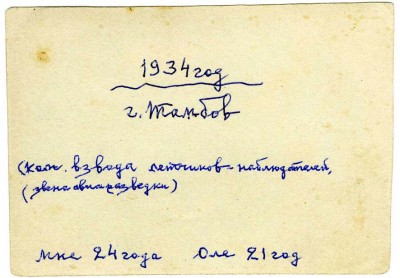 1934 год
г. Тамбов
(Ком. взвода летчиков-наблюдателей,
(звена авиаразведки)
Мне 24 года Оле 21 год